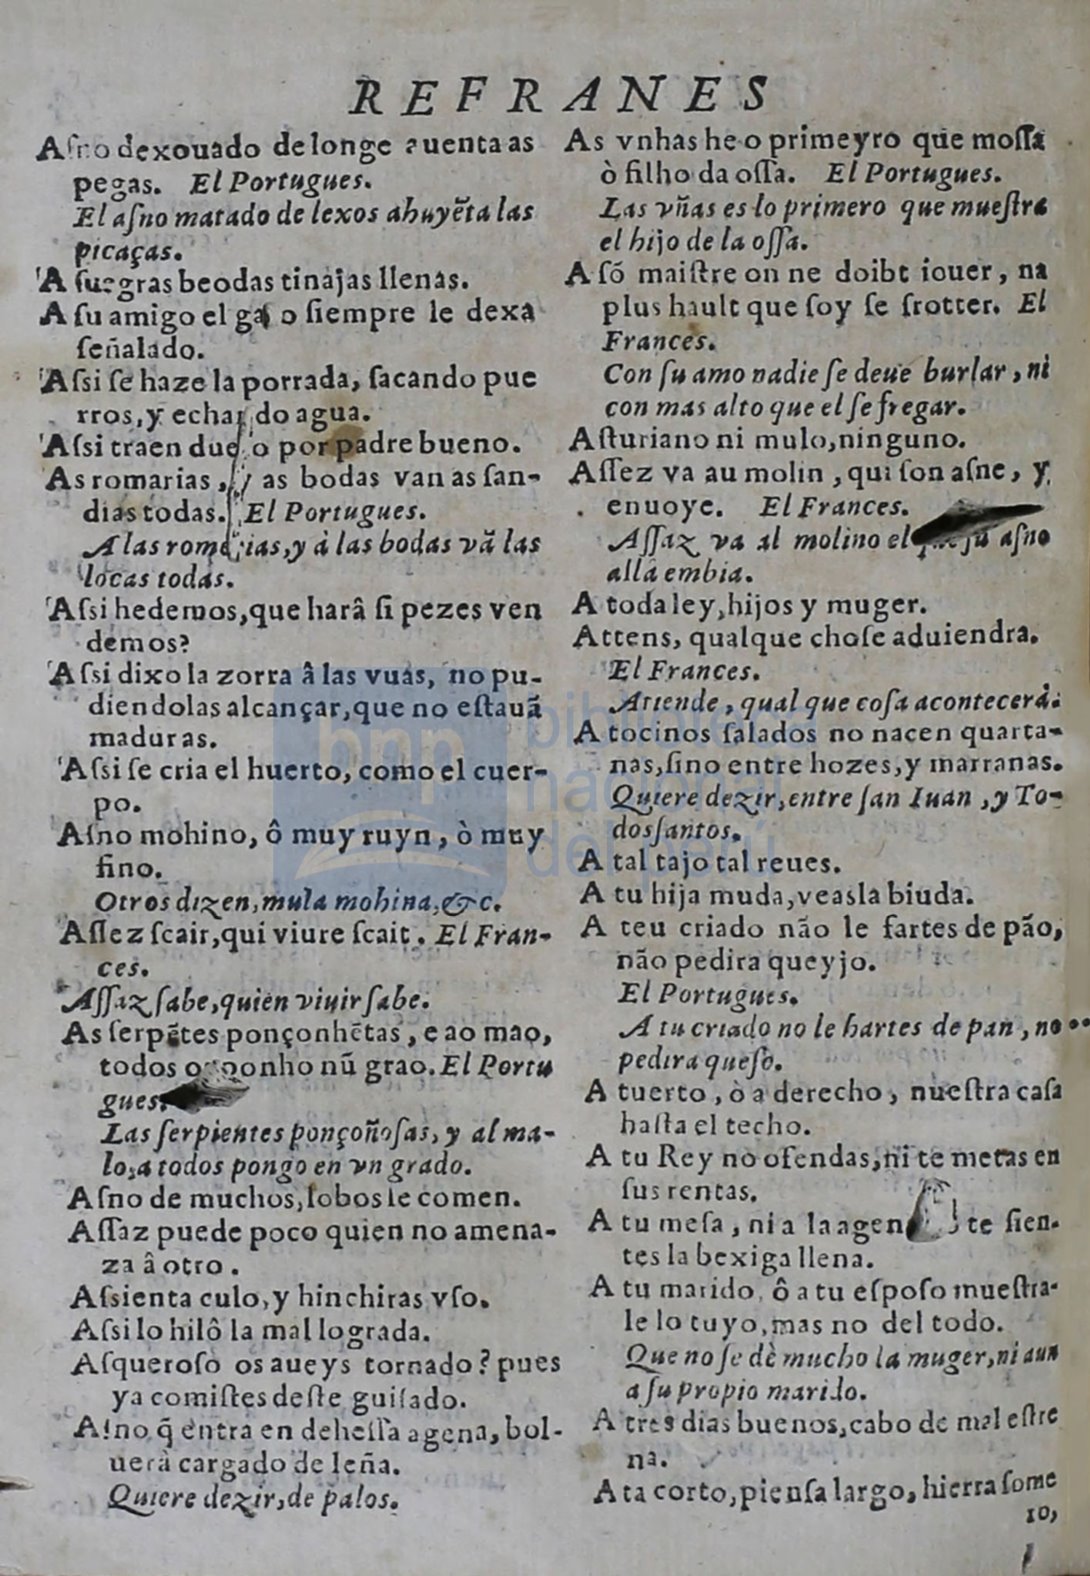 REFRANES
Aſno dexouado de longe auenta as
pegas. El Portugues.
El aſno matado de lexos ahuyẽta las
picaças.
A ſuegras beodas tinajas llenas.
A ſu amigo el gato ſiempre le dexa
ſeñalado.
Aſsi ſe haze la porrada, ſacando pue
rros, y echando agua.
Aſsi traen duelo por padre bueno.
As romarias, y as bodas van as ſan-
dias todas. El Portugues.
A las romerias, y à las bodas vã las
locas todas.
Aſsi hedemos, que harâ ſi pezes ven
demos?
Aſsi dixo la zorra â las vuas, no pu-
diendolas alcançar, que no eſtauã
maduras.
Aſsi ſe cria el huerto, como el cuer-
po.
Aſno mohino, ô muy ruyn, ò muy
fino.
Otros dizen, mula mohina, &c.
Aſſez ſcair, qui viure ſcait. El Fran-
ces.
Aſſaz ſabe, quien viuir ſabe.
As ſerpẽtes ponçonhẽtas, e ao mao,
todos os ponho nũ grao. El Portu
gues.
Las ſerpientes ponçoñoſas, y al ma-
lo, a todos pongo en vn grado.
Aſno de muchos, lobos le comen.
Aſſaz puede poco quien no amena-
za â otro.
Aſsienta culo, y hinchiras vſo.
Aſsi lo hilô la mal lograda.
Aſqueroſo os aueys tornado? pues
ya comiſtes deſte guiſado.
Aſno q̃ entra en deheſſa agena, bol-
uerà cargado de leña.
Quiere dezir, de palos.
As vnhas he o primeyro que moſſa
ò filho da oſſa. El Portugues.
Las vñas es lo primero que mueſtra
el hijo de la oſſa.
A ſõ maiſtre on ne doibt iouer, na
plus hault que ſoy ſe frotter. El
Frances.
Con ſu amo nadie ſe deue burlar, ni
con mas alto que el ſe fregar.
Aſturiano ni mulo, ninguno.
Aſſez va au molin, qui ſon aſne, y
enuoye. El Frances.
Aſſaz va al molino el que ſu aſno
alla embia.
A toda ley, hijos y muger.
Attens, qualque choſe aduiendra.
El Frances.
Attende, qual que coſa acontecerà.
A tocinos ſalados no nacen quarta-
nas, ſino entre hozes, y marranas.
Quiere dezir, entre ſan Iuan, y To-
dosſantos.
A tal tajo tal reues.
A tu hija muda, veasla biuda.
A teu criado não le fartes de pão,
não pedira queyjo.
El Portugues.
A tu criado no le hartes de pan, no
pedira queſo.
A tuerto, ò a derecho, nueſtra caſa
haſta el techo.
A tu Rey no ofendas, ni te metas en
ſus rentas.
A tu meſa, ni a la agena te ſien-
tes la bexiga llena.
A tu marido, ô a tu eſpoſo mueſtra-
le lo tuyo, mas no del todo.
Que no ſe dè mucho la muger, ni aun
a ſu propio marido.
A tres dias buenos, cabo de mal eſtre
na.
Ata corto, pienſa largo, hierra ſome
ro,
bnp biblioteca
nacional
del perú